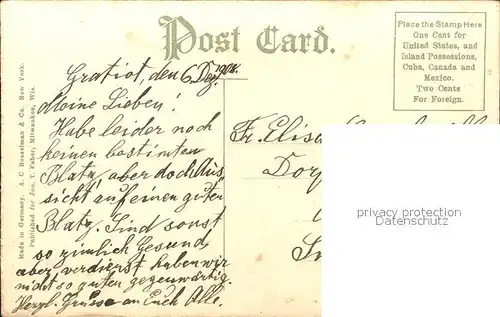 Post Card.
Place the Stamp Here
One Cent for
United States, and
Island Possessions,
Cuba, Canada and
Mexico.
Two Cents
For Foreign.
Made in Germany. A. C. Bosselman & Co. New York.
Published for Jos. T. Yaber, Milwaukee, Wis.
Gratiot, den 6 Dez. 1908.
Meine Lieben!
Habe leider noch
keinen bestimten
Platz, aber doch Aus
sicht auf einen guten
Platz. Sind sonst
so zimlich Gesund,
aber verdienst haben wir
nicht so guten gegenwärtig.
Herzl. Grüsse an Euch Alle.
Fr. Elisa
Dorf
privacy protection
www.ansichtskarten-lexikon.de